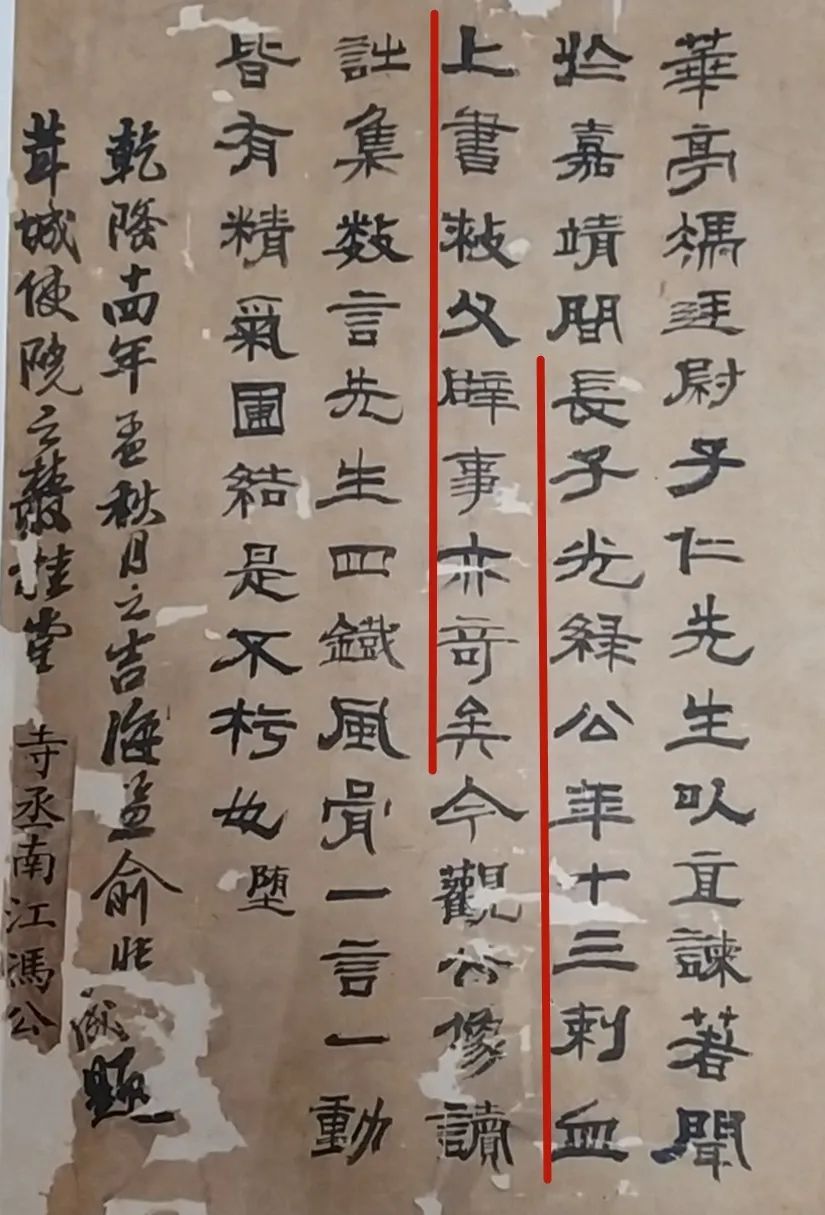 華亭馮廷尉子仁先生以直諫著聞
於嘉靖間長子光祿公年十三刺血
上書救父辟事亦奇矣今觀公像讀
詘集數言先生四鐵風骨一言一動
皆有精氣圑結是不朽也堕
乾隆十四年孟秋月之吉海盐俞兆成題
茸城使院之叢桂堂
寺丞南江馮公